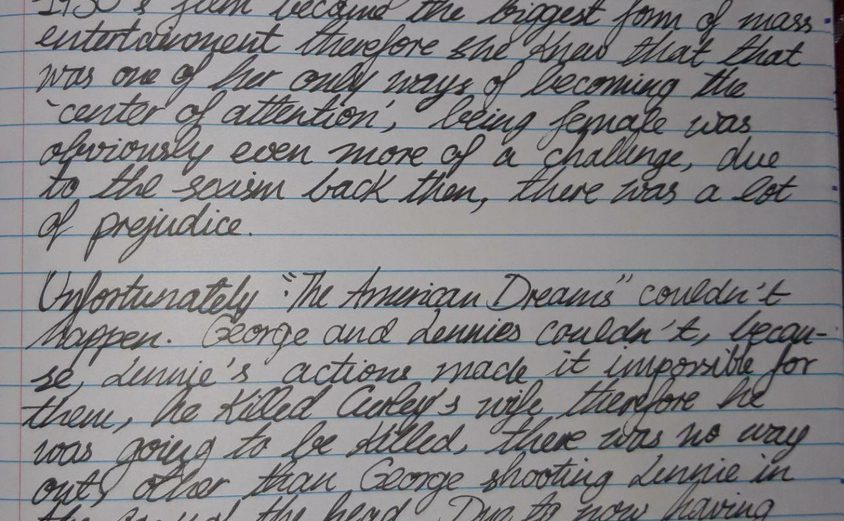 1930's film became the biggest form of mass
entertainment therefore she knew that that
was one of her only ways of becoming the
'center of attention', being female was
obviously even more of a challenge, due
to the sexism back then, there was a lot
of prejudice.
Unfortunately "The American Dreams" couldn't
happen. George and Lennies couldn't, becau-
se, Lennie's actions made it impossible for
them, he killed Curley's wife therefore he
was going to be killed, there was no way
out, other than George shooting Lennie in
the of the head. Due to now having